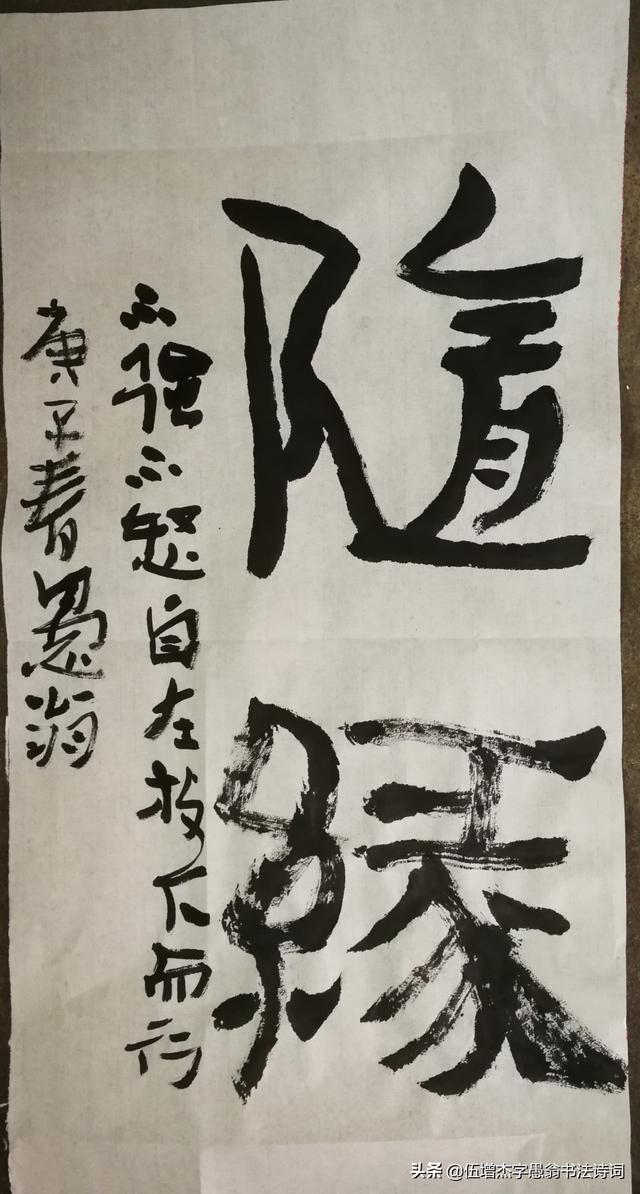 隨緣
不强不怒自在放下而行
庚子春愚翁
头条 @伍增杰字愚翁书法诗词